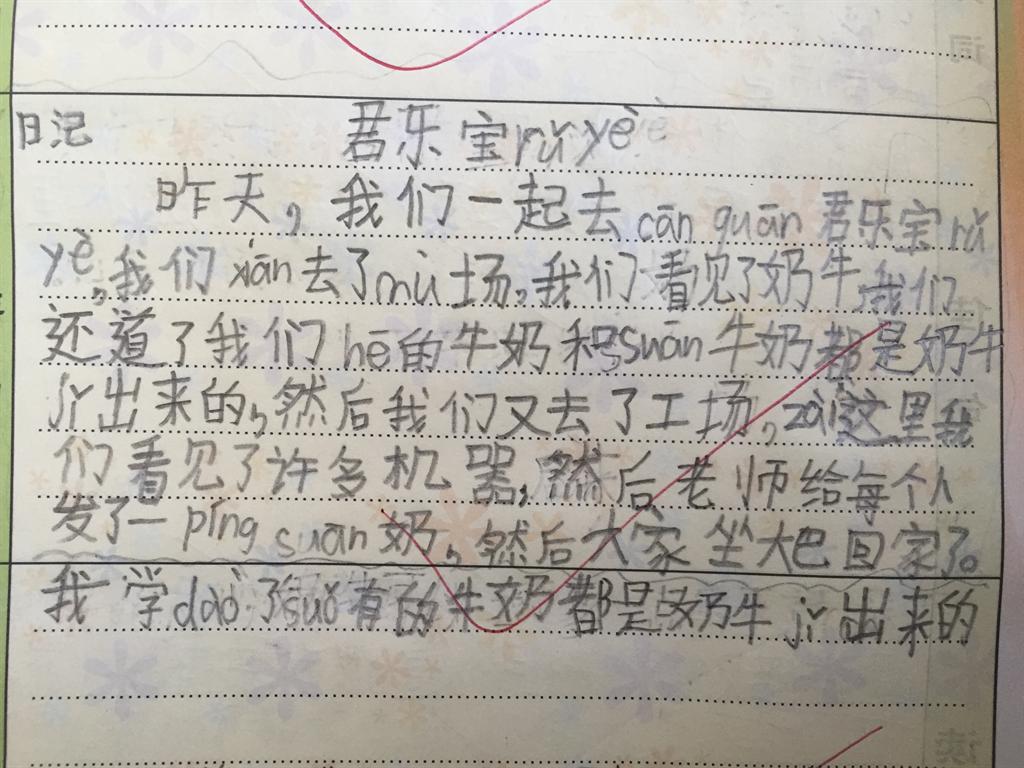 日记 君乐宝rǔ yè
昨天，我们一起去cān guān君乐宝rǔ
yè，我们xiān去了mù场，我们看见了奶牛，我们
还道了我们hē的牛奶和suān牛奶都是奶牛
jǐ出来的，然后我们又去了工场，zài这里我
们看见了许多机器，然后老师给每个人
发了一píng suān奶，然后大家坐大巴回家了。
我学dào了suǒ有的牛奶都是奶牛jǐ出来的